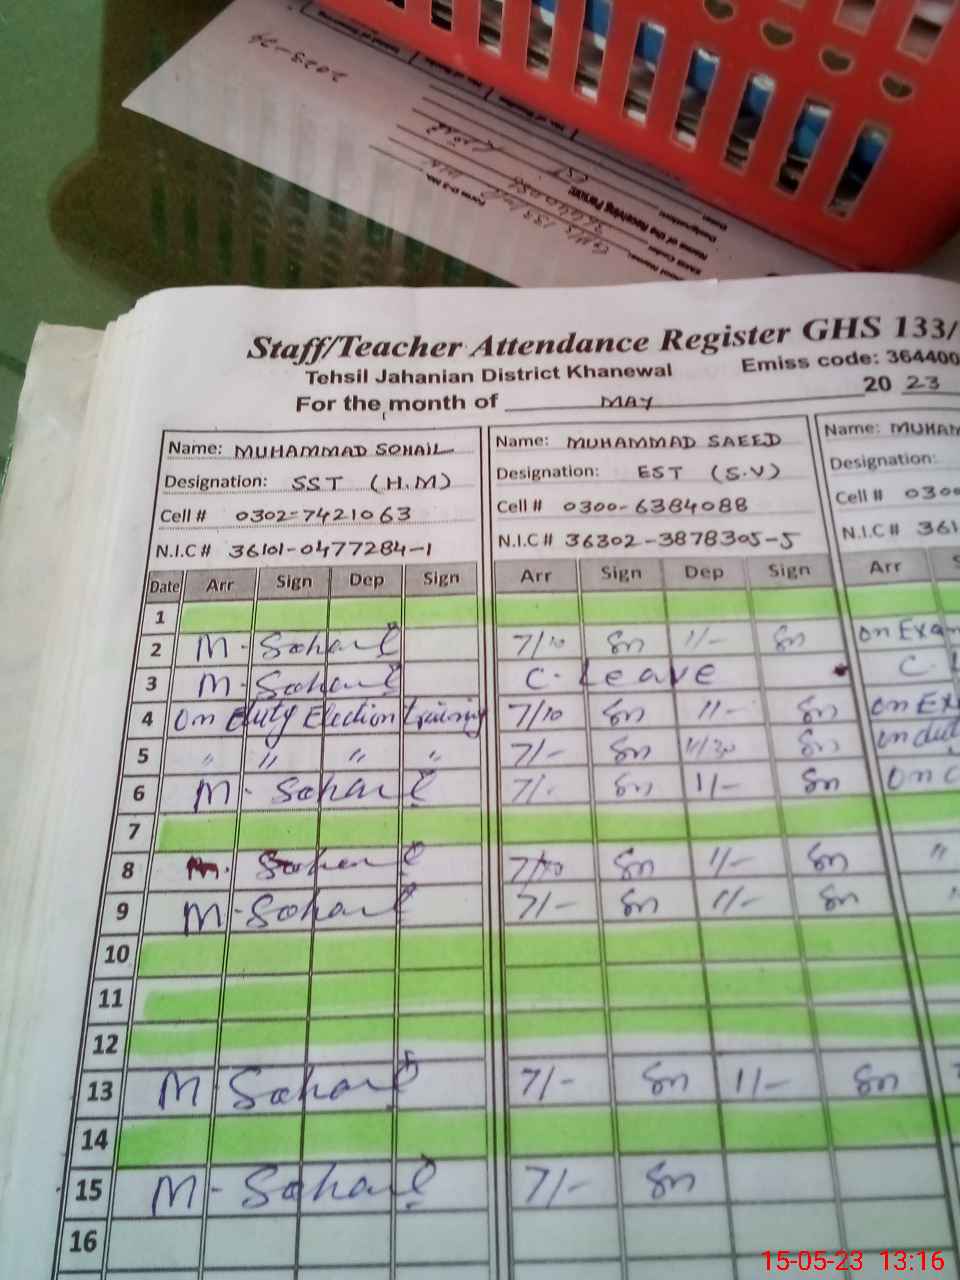 2023-24
Staff/Teacher Attendance Register GHS 133/
Tehsil Jahanian District Khanewal
Emiss code: 364400
For the month of MAY 2023
Name: MUHAMMAD SOHAIL
Designation: SST (H.M)
Cell # 0302-7421063
N.I.C # 36101-0477284-1
Name: MUHAMMAD SAEED
Designation: EST (S.V)
Cell # 0300-6384088
N.I.C # 36302-3878305-5
Name: MUHAM
Designation:
Cell # 030
N.I.C # 361
Date Arr Sign Dep Sign Arr Sign Dep Sign Arr S
1
2 M. Sohail 7/10 Sn 11/- Sn on Exam
3 M. Sohail C. Leave C. L
4 On duty Election training 7/10 Sn 11/- Sn on Ex
5 " " " " 7/- Sn 11/30 Sn on dut
6 M. Sohail 7/- Sn 11/- Sn on
7
8 M. Sohail 7/10 Sn 11/- Sn "
9 M. Sohail 7/- Sn 11/- Sn "
10
11
12
13 M. Sohail 7/- Sn 11/- Sn
14
15 M. Sohail 7/- Sn
16
15-05-23 13:16